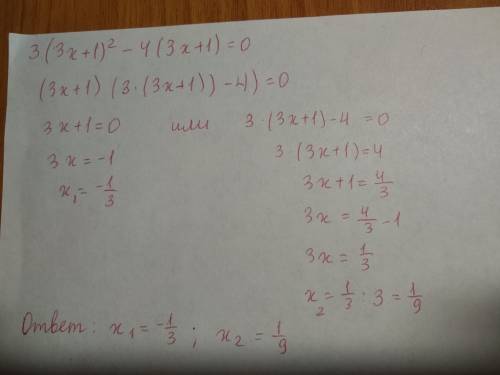 3(3x+1)² - 4(3x+1)=0
(3x+1) (3·(3x+1)) - 4)=0
3x+1=0 или 3·(3x+1)-4 =0
3x = -1 3·(3x+1)=4
x₁ = -1/3 3x+1=4/3
3x = 4/3 - 1
3x = 1/3
x₂ = 1/3 : 3 = 1/9
Ответ: x₁ = -1/3 ; x₂ = 1/9